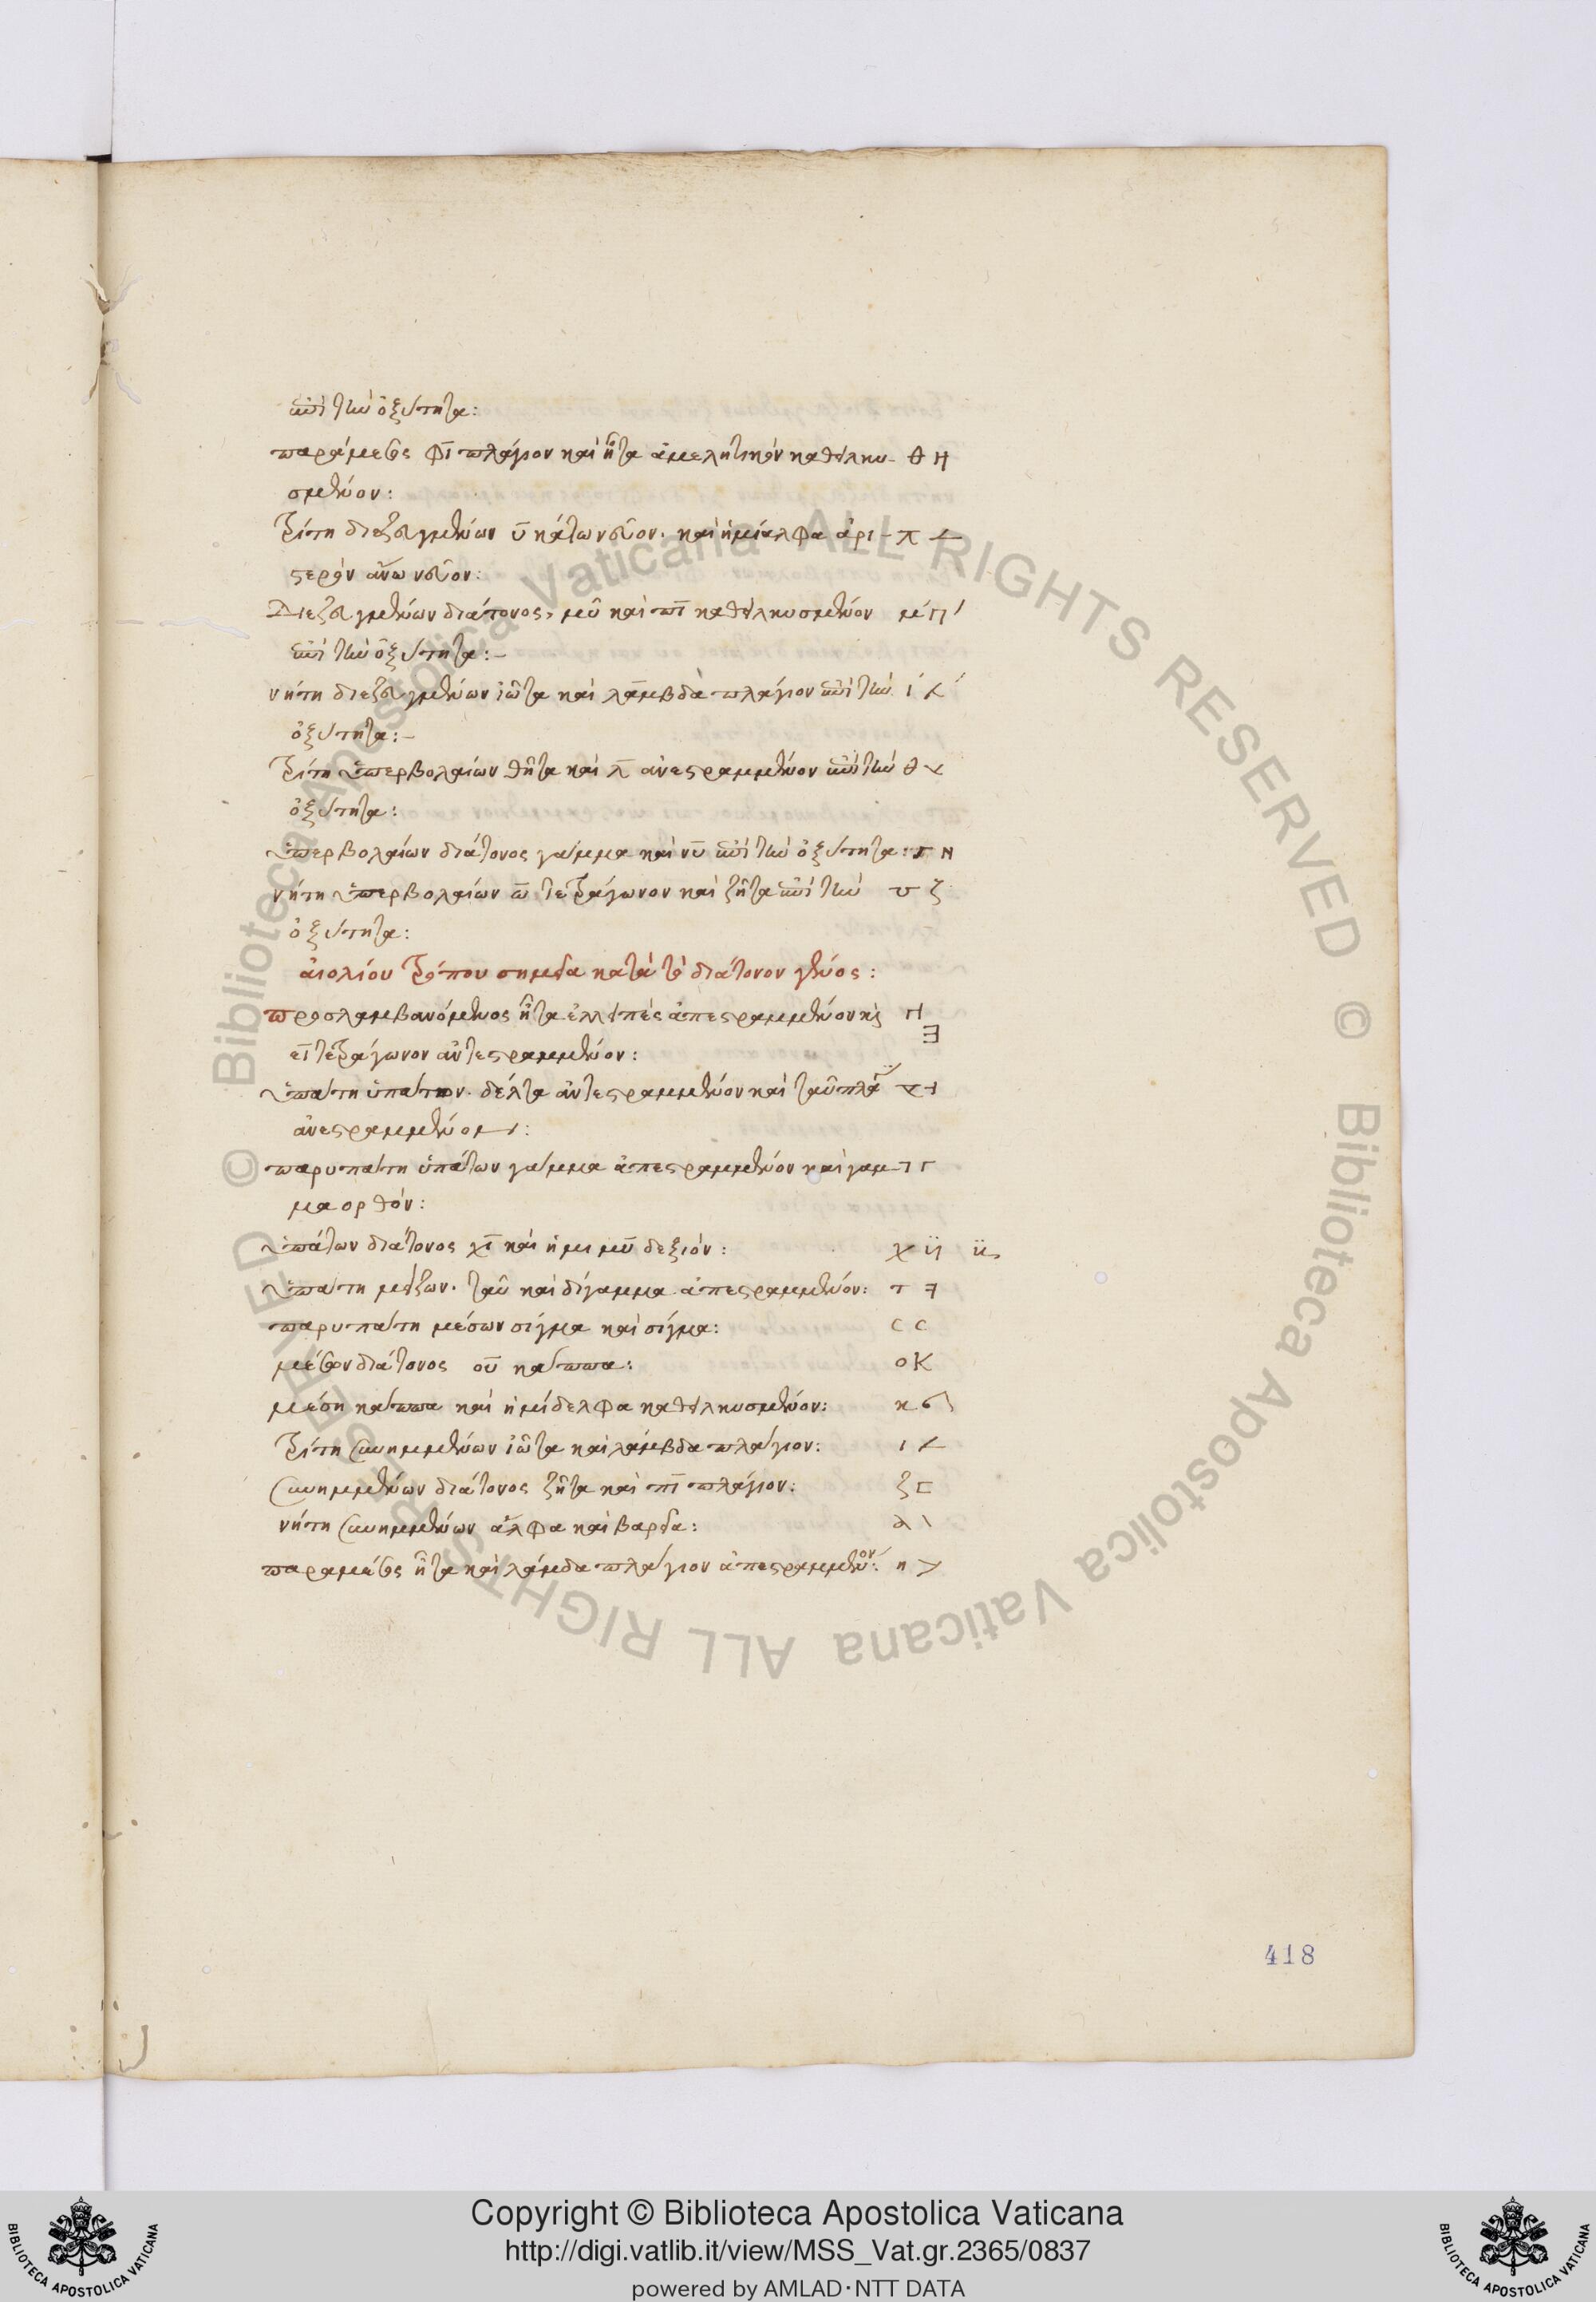 ἐπὶ τὴν ὀξύτητα:
παράμεσος φῖ πλάγιον καὶ ἦτα ἀμελητικὸν καθειλκυ- θ Η
σμένον:
Τρίτη διεζευγμένων ῡ κάτω νεῦον. καὶ ἡμίαλφα ἀρι-
στερὸν ἄνω νεῦον:
Διεζευγμένων διάτονος, μῦ καὶ πῖ καθειλκυσμένον
ἐπὶ τὴν ὀξύτητα:-
νήτη διεζευγμένων ἰῶτα καὶ λάμβδα πλάγιον ἐπὶ τὴν
ὀξύτητα:-
Τρίτη ὑπερβολαίων θῆτα καὶ λ̄ ἀνεστραμμένον ἐπὶ τὴν
ὀξύτητα:
ὑπερβολαίων διάτονος γάμμα καὶ νῦ ἐπὶ τὴν ὀξύτητα: Γ Ν
νήτη ὑπερβολαίων ω̄ τετράγωνον καὶ ζῆτα ἐπὶ τὴν
ὀξύτητα:
αἰολίου τρόπου σημεῖα κατὰ τὸ διάτονον γένος:
προσλαμβανόμενος ἦτα ἐλλιπὲς ἀπεστραμμένον κὶ
εῖ τετράγωνον ἀντεστραμμένον: Ǝ
ὑπάτη ὑπάτων. δέλτα ἀντεστραμμένον καὶ ταῦ πλά
ἀνεστραμμένον:
παρυπάτη ὑπάτων γάμμα ἀπεστραμμένον καὶ γαμ- ꓶ Γ
μα ορθόν:
ὑπάτων διάτονος χῖ καὶ ἡμι μῦ δεξιόν: χ
ὑπάτη μέσων. ταῦ καὶ δίγαμμα ἀπεστραμμένον: τ ꟻ
παρυπάτη μέσων σίγμα καὶ σίγμα: C C
μέσων διάτονος οῦ κάππα: ο Κ
μέση κάππα καὶ ἡμίδελφα καθειλκυσμένον: κ
Τρίτη συνημμένων ἰῶτα καὶ λάμβδα πλάγιον: ι <
συνημμένων διάτονος ζῆτα καὶ πῖ πλάγιον: ζ ⊏
νήτη συνημμένων ἄλφα καὶ βαρεῖα: α \
παραμέσος ἦτα καὶ λάμδα πλάγιον ἀπεστραμμένον: η >
418
Copyright © Biblioteca Apostolica Vaticana
http://digi.vatlib.it/view/MSS_Vat.gr.2365/0837
powered by AMLAD·NTT DATA
BIBLIOTECA APOSTOLICA VATICANA
BIBLIOTECA APOSTOLICA VATICANA
© Biblioteca Apostolica Vaticana ALL RIGHTS RESERVED © Biblioteca Apostolica Vaticana ALL RIGHTS RESERVED